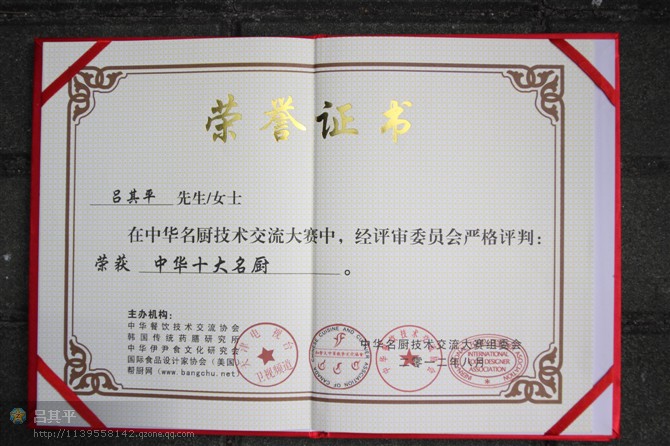 荣誉证书
吕其平 先生/女士
在中华名厨技术交流大赛中，经评审委员会严格评判：
荣获 中华十大名厨 。
主办机构：
中华餐饮技术交流协会
韩国传统药膳研究院
中华伊尹食文化研究会
国际食品设计家协会（美国）
帮厨网（www.bangchu.net）
天津电视台
卫视频道
中华名厨技术交流大赛组委会
二零一二年八月
INTERNATIONAL
FOOD DESIGNER
ASSOCIATION
吕其平
http://1139558142.qzone.qq.com